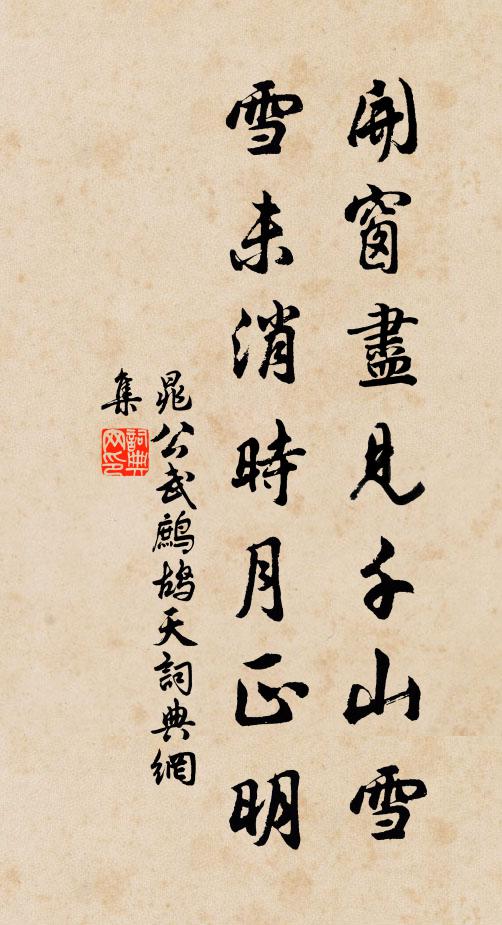 開窗盡見千山雪
雪未消時月正明
晁公武鷓鴣天詞典網
集
詞典
网印